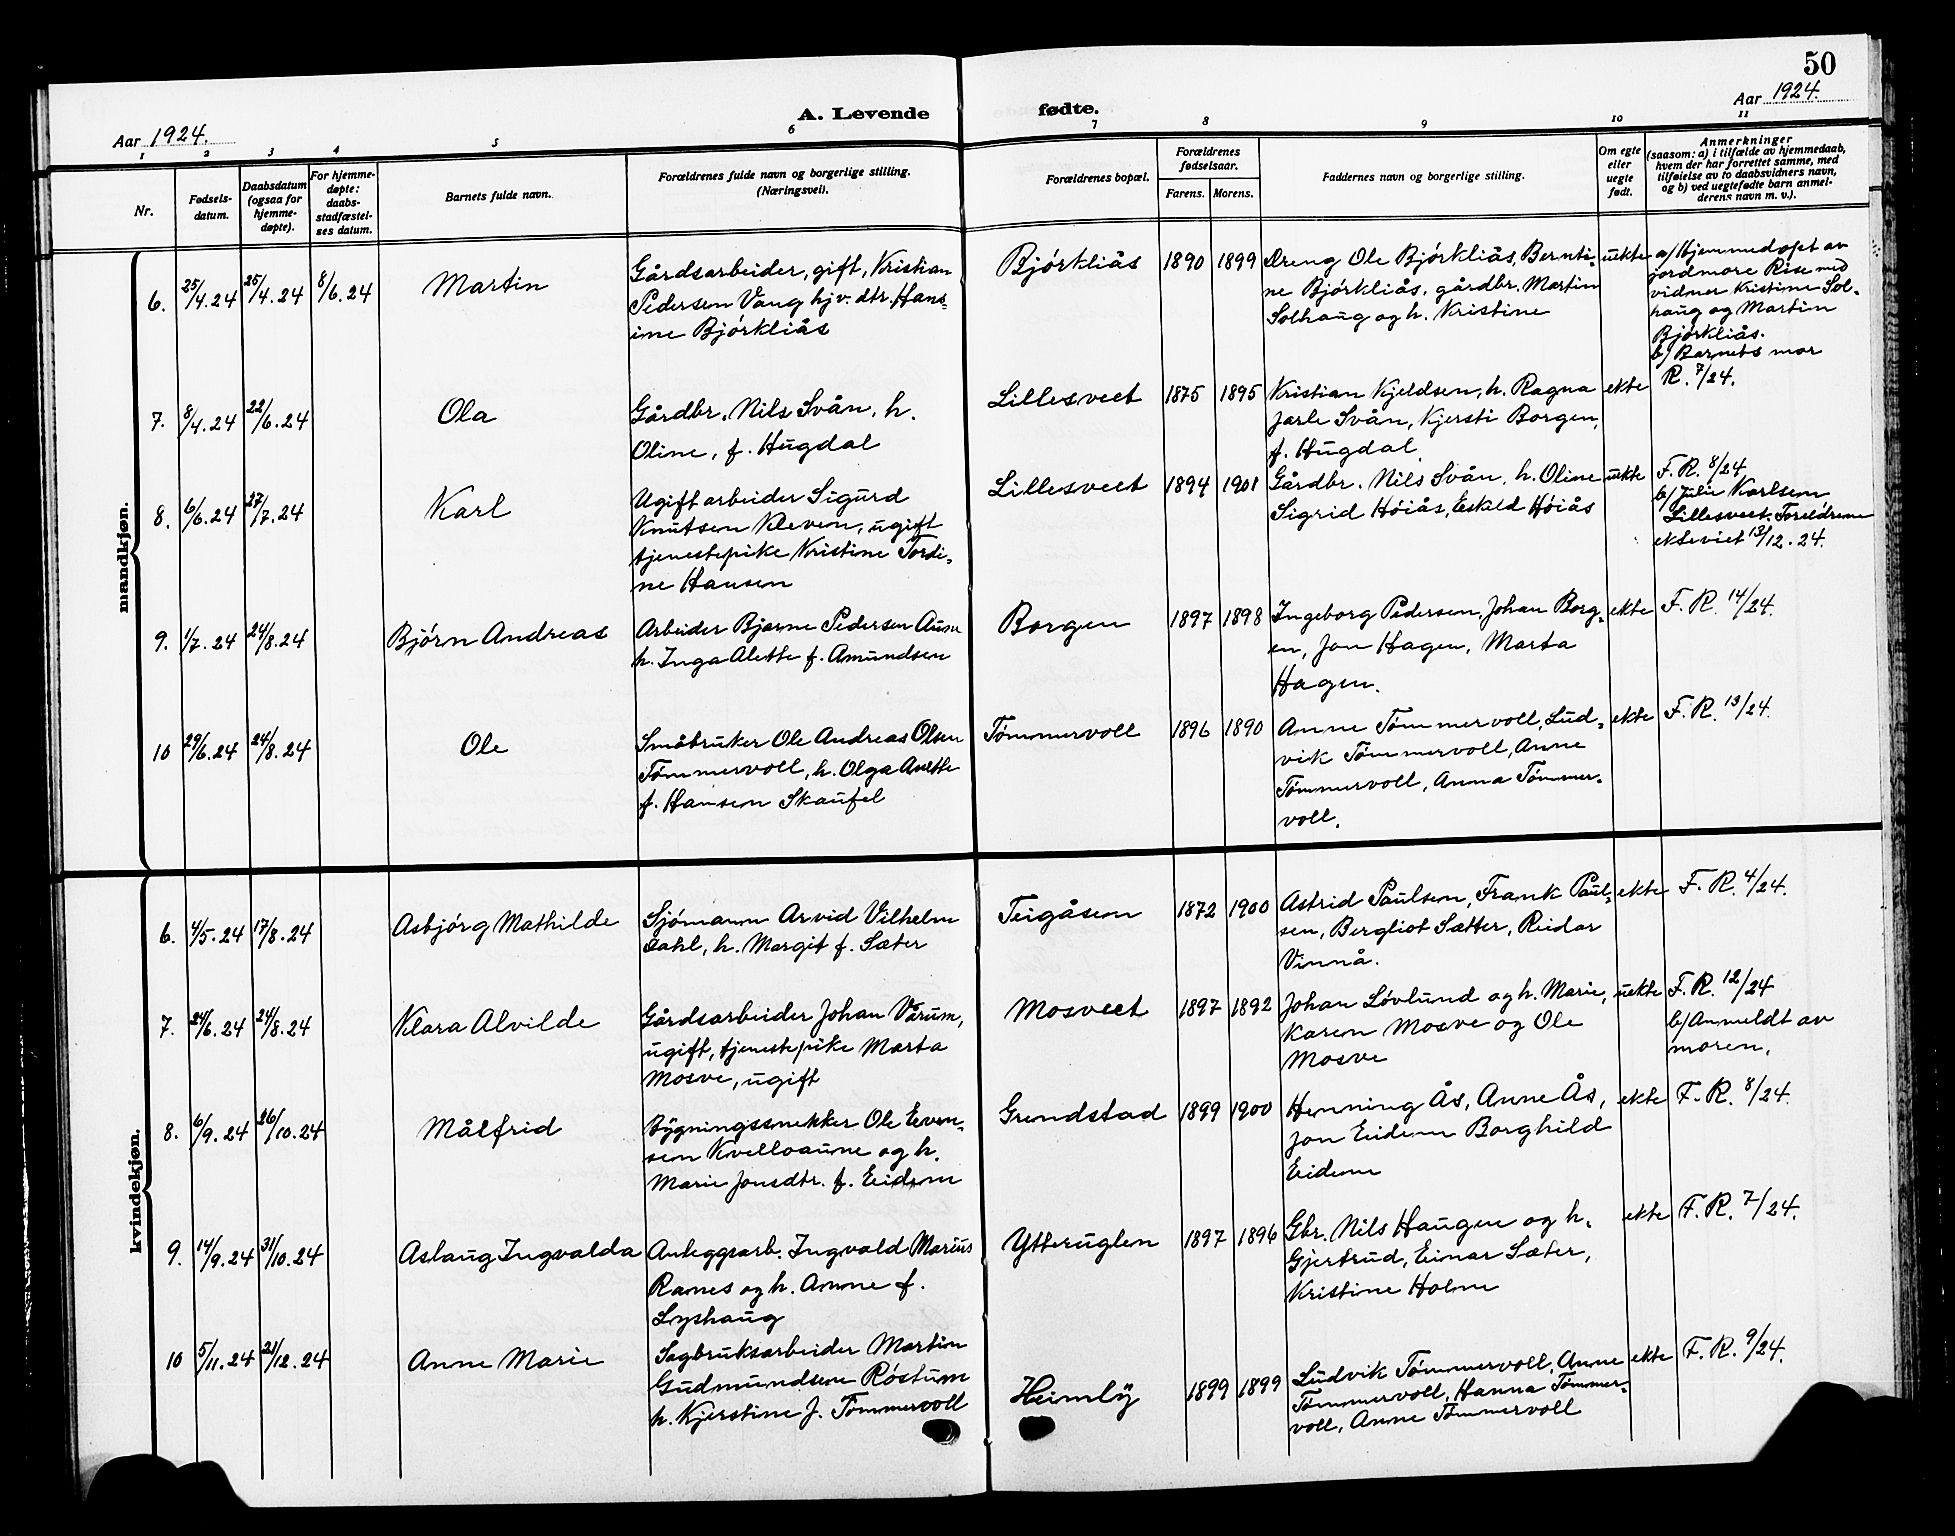 50
A. Levende fødte.
Aar 1924.
Aar 1924.
1 2 3 4 5 6 7 8 9 10 11
Nr.
Fødsels-
datum.
Daabsdatum
(ogsaa for
hjemme-
døpte).
For hjemme-
døpte:
daabs-
stadfæstel-
ses datum.
Barnets fulde navn.
Forældrenes fulde navn og borgerlige stilling.
(Næringsvei).
Forældrenes bopæl.
Forældrenes
fødselsaar.
Farens. Morens.
Faddernes navn og borgerlige stilling.
Om egte
eller
uegte
født.
Anmerkninger
(saasom: a) i tilfælde av hjemmedaab,
hvem der har forrettet samme, med
tilføielse av to daabsvidners navn,
og b) ved uegtefødte barn anmel-
derens navn m. v.).
mandkjøn.
6. 25/4.24 25/4.24 8/6.24 Martin
Gårdsarbeider, gift, Kristian
Pedersen Vang hjv. dtr. Hans-
ine Bjørkliås
Bjørkliås 1890 1899
Dreng Ole Bjørkliås, Bernti-
ne Bjørkliås, gårdbr. Martin
Solhaug og h. Kristine
uekte
a/ Hjemmedøpt av
jordmore Rise med
vidner Kristine Sol-
haug og Martin
Bjørkliås.
b/ Barnets mor
R. 7/24.
7. 8/4.24 22/6.24 Ola
Gårdbr. Nils Svån, h.
Oline, f. Hugdal
Lillesveet 1875 1895
Kristian Kjeldsen, h. Ragna
Jarle Svån, Kjersti Borgen,
f. Hugdal
ekte
8. 6/6.24 27/7.24 Karl
Ugift arbeider Sigurd
Knutsen Kleven, ugift
tjenestepike Kristine Tordi-
ne Hansen
Lillesveet 1894 1901
Gårdbr. Nils Svån, h. Oline
Sigrid Høiås, Eskild Høiås
uekte
F. R. 8/24
b/ Julie Karlsen
Lillesveet. Foreldrene
ekteviet 13/12.24.
9. 1/7.24 24/8.24 Bjørn Andreas
Arbeider Bjarne Pedersen Aune
h. Inga Alette f. Amundsen
Borgen 1897 1898
Ingeborg Pedersen, Johan Borg-
en, Jon Hagen, Marta
Hagen.
ekte
F. R. 14/24.
10 29/6.24 24/8.24 Ole
Småbruker Ole Andreas Olsen
Tømmervoll, h. Olga Anette
f. Hansen Skaufel
Tømmervoll 1896 1890
Anne Tømmervoll, Lud-
vik Tømmervoll, Anne
Tømmervoll, Anna Tømmer-
voll.
ekte
F. R. 13/24.
kvindekjøn.
6. 4/5.24 17/8.24 Asbjørg Mathilde
Sjømann Arvid Vilhelm
Dahl, h. Margit f. Sæter
Teigåsen 1872 1900
Astrid Paulsen, Frank Paul-
sen, Bergliot Sætter, Reidar
Vinnå.
ekte
F. R. 4/24.
7. 24/6.24 24/8.24 Klara Alvilde
Gårdsarbeider Johan Vårum,
ugift, tjenestepike Marta
Mosve, ugift
Mosveet 1897 1892
Johan Løvlund og h. Marie,
Karen Mosve og Ole
Mosve
uekte
F. R. 12/24
b/ Anmeldt av
moren.
8. 6/9.24 26/10.24 Målfrid
Bygningssnekker Ole Even-
sen Kvelloaune og h.
Marie Jonsdtr. f. Eidem
Grendstad 1899 1900
Henning Ås, Anne Ås,
Jon Eidem Borghild
Eidem
ekte
F. R. 8/24.
9. 14/9.24 31/10.24 Aslaug Ingvalda
Anleggsarb. Ingvald Marius
Ranes og h. Anne f.
Lyshaug
Ytteruglen 1897 1896
Gbr. Nils Haugen og h.
Gjertrud, Einar Sæter,
Kristine Holm
ekte
F. R. 7/24.
10 5/11.24 21/12.24 Anne Marie
Sagbruksarbeider Martin
Gudmundsen Røstum
h. Kjerstine f. Tømmervoll
Heimly 1899 1899
Ludvik Tømmervoll, Anne
Tømmervoll, Hanna Tømmer-
voll, Anne Tømmervoll
ekte
F. R. 9/24.